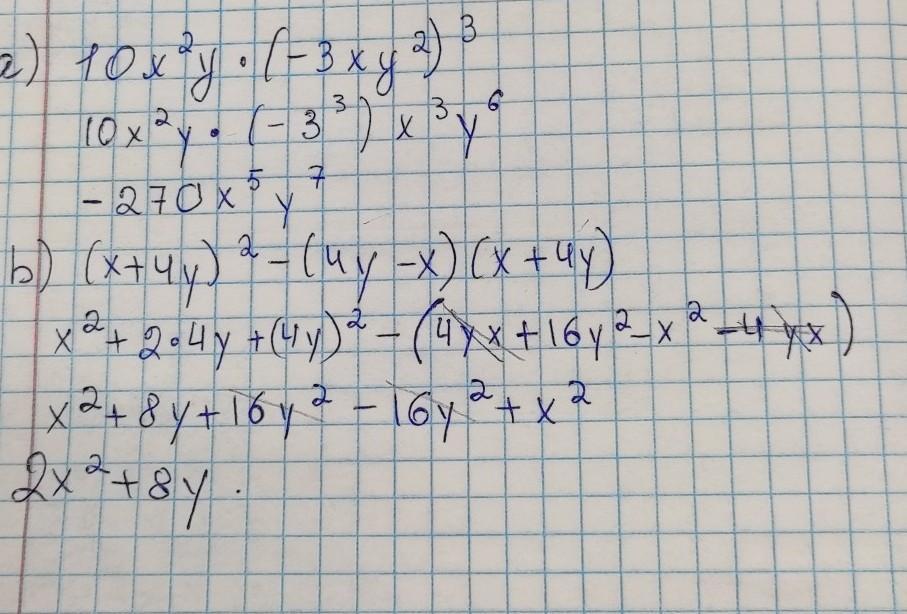 a) 10x²y · (-3xy²)³
10x²y · (-3³) x³y⁶
-270x⁵y⁷
b) (x+4y)² - (4y-x)(x+4y)
x² + 2·4y + (4y)² - (4yx + 16y² - x² - 4yx)
x² + 8y + 16y² - 16y² + x²
2x² + 8y.